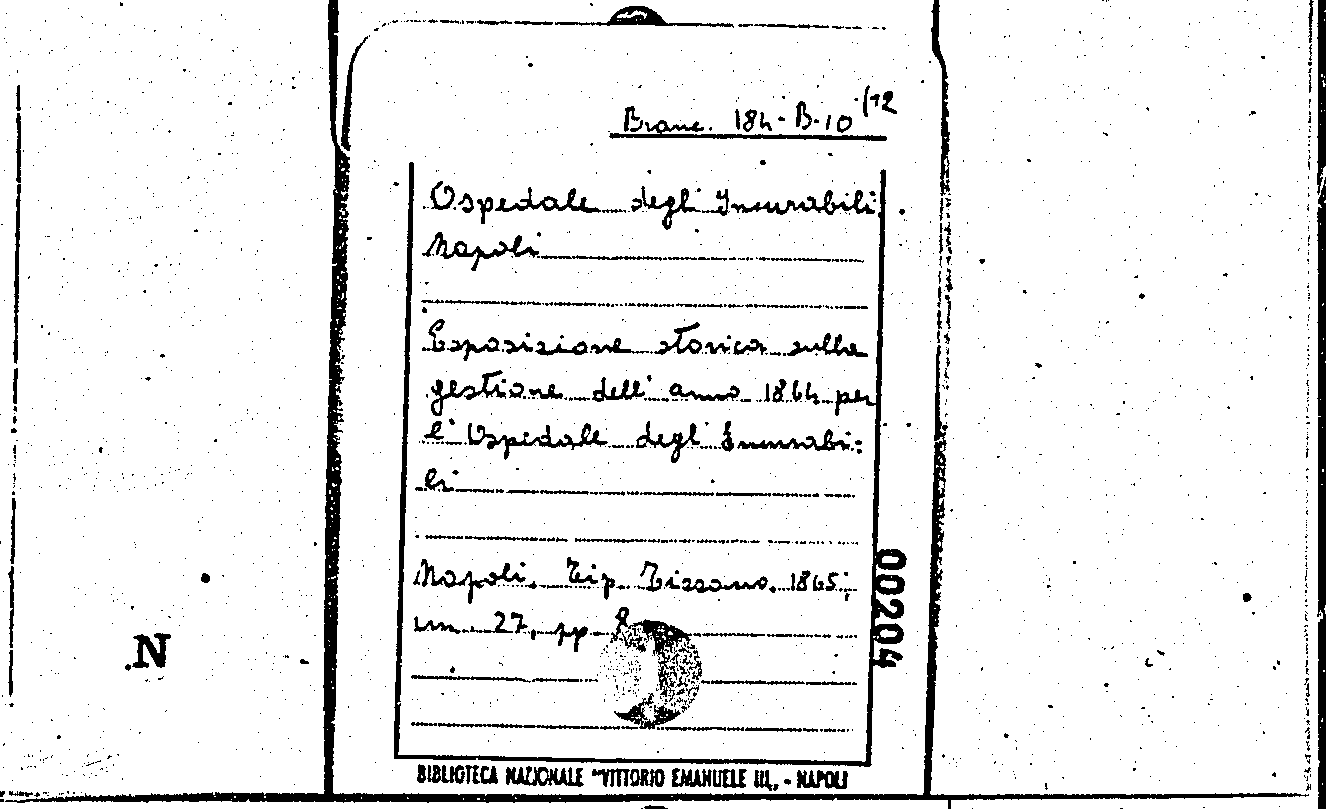 Branc. 184-B-10 (12
Ospedale degl' Incurabili.
Napoli
Esposizione storica sulla
gestione dell' anno 1864 per
l' Ospedale degl' Incurabi:
li
Napoli. Tip. 1865;
cm. 27, pp. 8
00204
N
BIBLIOTECA NAZIONALE "VITTORIO EMANUELE III, - NAPOLI